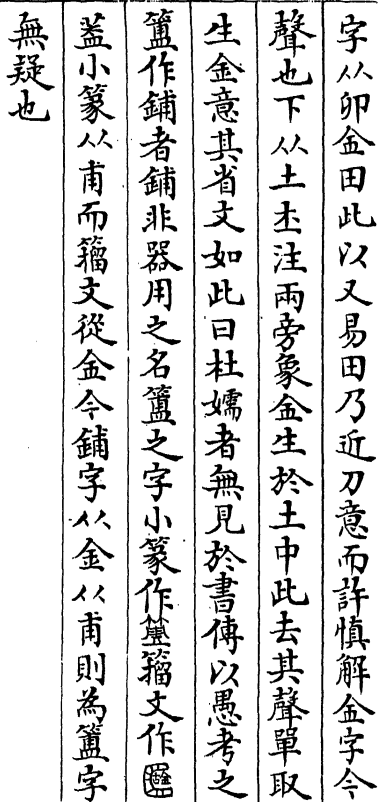 字从卯金田此以又易田乃近刀意而許慎解金字今
聲也下从土𡈽注兩旁象金生於土中此去其聲單取
生金意其省文如此曰杜嬬者無見於書傳以愚考之
簠作鋪者鋪非器用之名簠之字小篆作籀文作
盖小篆从甫而籀文從金今鋪字从金从甫則為簠字
無疑也